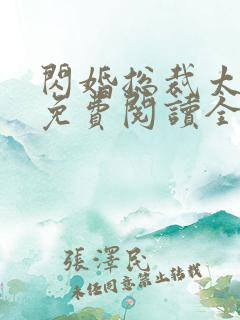 閃婚總裁太
免費閱讀全
張澤民
未經同意禁止轉載